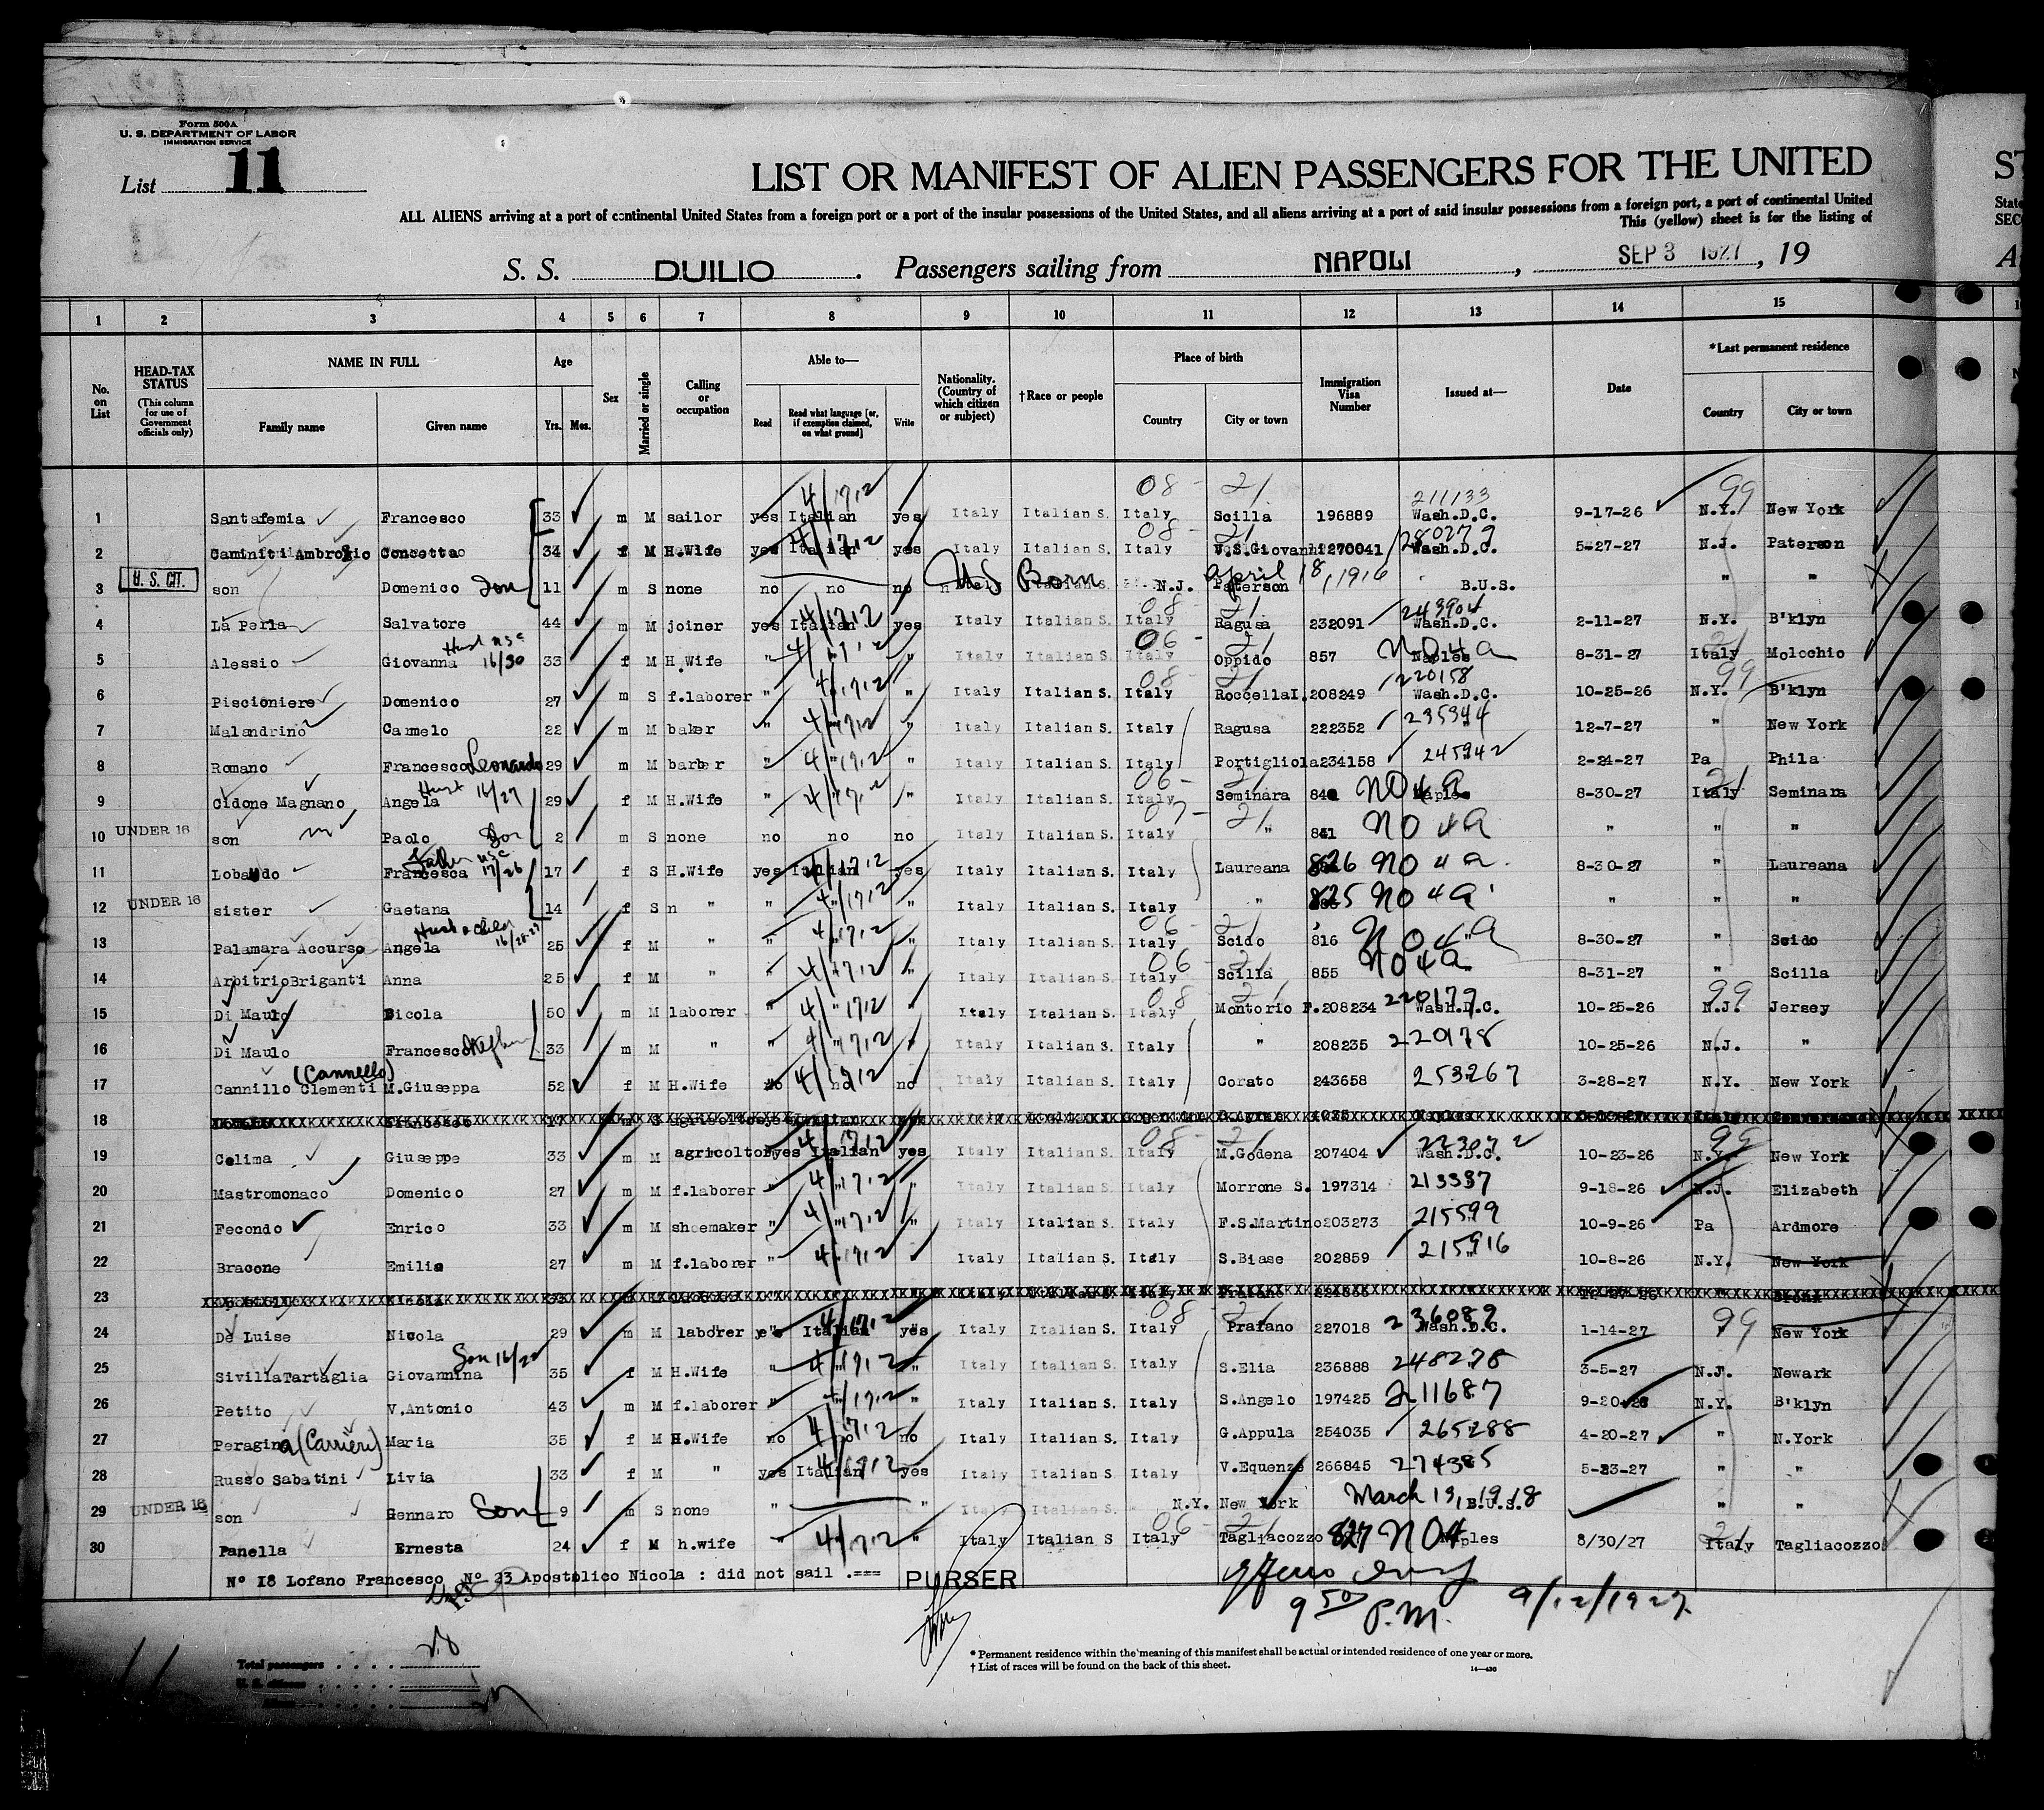 Form 500A
U. S. DEPARTMENT OF LABOR
IMMIGRATION SERVICE
List 11
LIST OR MANIFEST OF ALIEN PASSENGERS FOR THE UNITED
ALL ALIENS arriving at a port of continental United States from a foreign port or a port of the insular possessions of the United States, and all aliens arriving at a port of said insular possessions from a foreign port, a port of continental United
This (yellow) sheet is for the listing of
S. S. DUILIO . Passengers sailing from NAPOLI , SEP 3 1927 , 19
1 2 3 4 5 6 7 8 9 10 11 12 13 14 15
No. on List
HEAD-TAX STATUS (This column for use of Government officials only)
NAME IN FULL Family name Given name
Age Yrs. Mos.
Sex
Married or single
Calling or occupation
Able to— Read Read what language [or, if exemption claimed, on what ground] Write
Nationality. (Country of which citizen or subject)
†Race or people
Place of birth Country City or town
Immigration Visa Number
Issued at—
Date
*Last permanent residence Country City or town
1 Santafemia Francesco 33 m M sailor yes Italian 4/1712 yes Italy Italian S. Italy 08 - 21 Scilla 196889 211133 Wash.D.C. 9-17-26 N.Y. 99 New York
2 Caminiti Ambrogio Concetta 34 f M H.Wife yes Italian 4/1712 yes Italy Italian S. Italy 08 - 21 V.S.Giovanni 270041 280279 Wash.D.C. 5-27-27 N.J. Paterson
3 U. S. CIT. son Domenico Son 11 m S none no no no US Born N.J. Paterson April 18, 1916 B.U.S. " "
4 La Perla Salvatore 44 m M joiner yes Italian 4/1712 yes Italy Italian S. Italy 08 - 21 Ragusa 232091 243904 Wash.D.C. 2-11-27 N.Y. B'klyn
5 Alessio Giovanna 16/30 33 f M H.Wife " 4/1712 " Italy Italian S. Italy 06 - 21 Oppido 857 NO 4a Naples 8-31-27 Italy 21 Molochio
6 Piscioniere Domenico 27 m S f.laborer " 4/1712 " Italy Italian S. Italy 08 - 21 RoccellaI. 208249 220158 Wash.D.C. 10-25-26 N.Y. 99 B'klyn
7 Malandrino Carmelo 22 m M baker " 4/1712 " Italy Italian S. Italy Ragusa 222352 235344 12-7-27 " New York
8 Romano Francesco Leonardo 29 m M barber " 4/1712 " Italy Italian S. Italy Portigliola 234158 245942 2-24-27 Pa Phila
9 Cidone Magnano Angela 16/27 29 f M H.Wife " 4/1712 " Italy Italian S. Italy 06 - 21 Seminara 840 NO 4a Naples 8-30-27 Italy 21 Seminara
10 UNDER 16 son Paolo Son 2 m S none no no no Italy Italian S. Italy 07 - 21 " 841 NO 4a " " "
11 Lobando Francesca Father 17/26 17 f S H.Wife yes Italian 4/1712 yes Italy Italian S. Italy Laureana 826 NO 4a 8-30-27 " Laureana
12 UNDER 16 sister Gaetana 14 f S n " " 4/1712 " Italy Italian S. Italy " 825 NO 4a " " "
13 Palamara Accurso Angela 25 f M " " 4/1712 " Italy Italian S. Italy 06 - 21 Scido 816 NO 4a " 8-30-27 " Scido
14 ArbitrioBriganti Anna 25 f M " " 4/1712 " Italy Italian S. Italy 06 - 21 Scilla 855 NO 4a 8-31-27 " Scilla
15 Di Maulo Nicola 50 m M laborer " 4/1712 Italy Italian S. Italy 08 - 21 Montorio F. 208234 220179 Wash.D.C. 10-25-26 N.J. 99 Jersey
16 Di Maulo Francesco Nephew 33 m M " " 4/1712 " Italy Italian S. Italy " 208235 220178 10-25-26 N.J. "
17 Cannillo Clementi (Cannello) M.Giuseppa 52 f M H.Wife no 4/1712 no no Italy Italian S. Italy Corato 243658 253267 3-28-27 N.Y. New York
18 Francesco 17
19 Celima Giuseppe 33 m M agricoltor yes Italian 4/1712 yes Italy Italian S. Italy 08 - 21 M.Godena 207404 223072 Wash.D.C. 10-23-26 N.Y. 99 New York
20 Mastromonaco Domenico 27 m M f.laborer " 4/1712 " Italy Italian S. Italy Morrone S. 197314 213387 9-18-26 N.J. Elizabeth
21 Fecondo Enrico 33 m M shoemaker " 4/1712 " Italy Italian S. Italy F.S.Martino 203273 215599 10-9-26 Pa Ardmore
22 Bracone Emilio 27 m M f.laborer " 4/1712 Italy Italian S. Italy S.Biase 202859 215916 10-8-26 N.Y. New York
23
24 De Luise Nicola 29 m M laborer yes Italian 4/1712 yes Italy Italian S. Italy 08 21 Praiano 227018 236089 Wash.D.C. 1-14-27 99 New York
25 SivillaTartaglia Giovannina Son 35 f M H.Wife " 4/1712 " Italy Italian S. Italy S.Elia 236888 248278 3-5-27 N.J. Newark
26 Petito V.Antonio 43 m M f.laborer " 4/1712 " Italy Italian S. Italy S.Angelo 197425 211687 9-20-26 N.Y. B'klyn
27 Peragina (Carrieri) Maria 35 f M H.Wife no 4/1712 no no Italy Italian S. Italy G.Appula 254035 265288 4-20-27 " N.York
28 Russo Sabatini Livia 33 f M " yes Italian 4/1712 yes Italy Italian S. Italy V.Equense 266845 274385 5-23-27 " "
29 UNDER 16 son Gennaro Son 9 m S none " " N.Y. New York March 19, 1918 B.U.S. " "
30 Panella Ernesta 24 f M h.wife " 4/1712 " Italy Italian S Italy 06 - 21 Tagliacozzo 827 NO 4 Naples 8/30/27 Italy 21 Tagliacozzo
Nº 18 Lofano Francesco Nº 23 Apostolico Nicola : did not sail .=== PURSER
9 50 P.M. 9/12/1927.
Total passengers 28
U. S. citizens
Aliens
* Permanent residence within the meaning of this manifest shall be actual or intended residence of one year or more.
† List of races will be found on the back of this sheet.
14—430